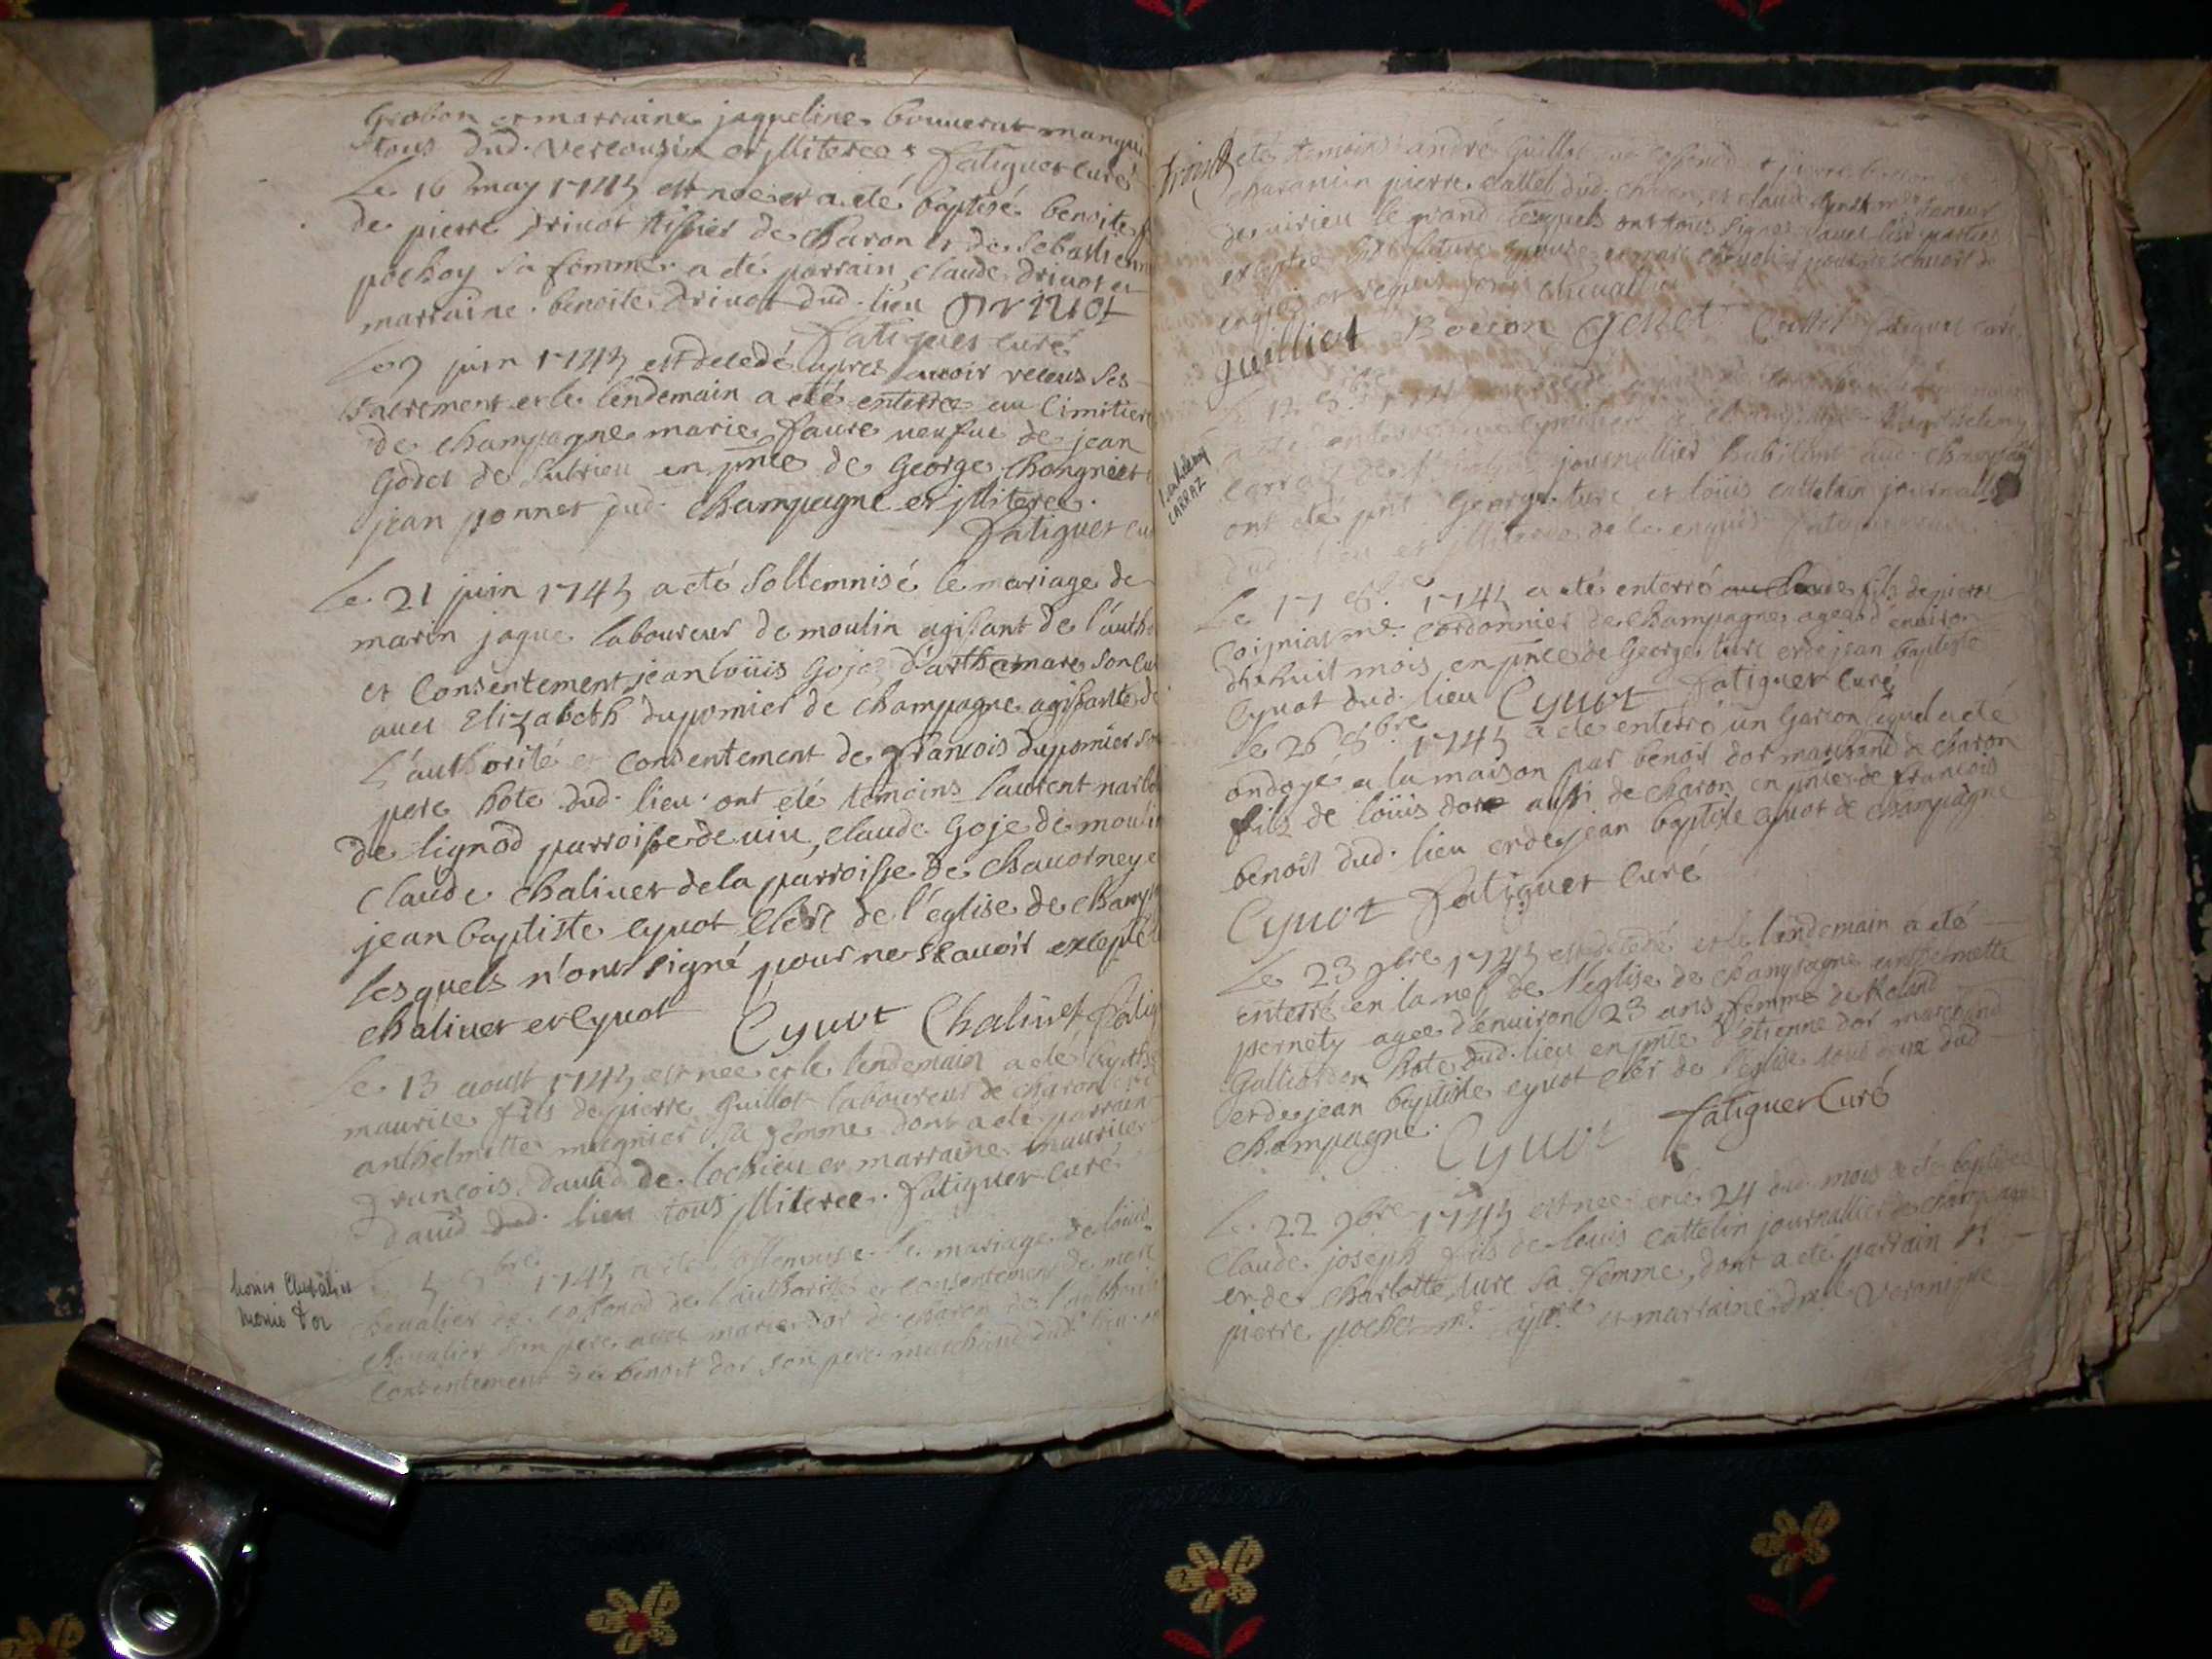 Grobon et marraine jaqueline bouuerat
tous dud. vercousin et illiteree fatiguet curé
Le 16 may 1745 est nee et a eté baptisé benoite
de pierre driuot tissier de charon et de sebastienne
pochoy sa femme a eté parrain claude driuot et
marraine benoite driuot dud. lieu DriUot
fatiguet curé
Le 9 juin 1745 est decedé apres auoir receus ses
sacrement et le lendemain a eté enterree au cimitiere
de champagne marie faure ueufue de jean
godet de sutrieu en pnce de george chongniet
jean ponnet dud. champagne et illiteree
fatiguet cur
Le 21 juin 1745 a eté sollemnisé le mariage de
marin jague laboureur de moulin agisant de l'autho
et consentement jean loüis goje d'arthemare son cur
auec elizabeth dupomier de champagne agissante de
l'authorité et consentement de francois dupomier son
pere hote dud. lieu ont eté temoins laurent narbo
de lignod parroisse de uiu, claude goje de moulin
claude chaliuet de la parroisse de chauorney e
jean baptiste cyuot clerc de l'eglise de champ
lesquels n'ont signé pour ne scauoir excepté
chaliuet et cyuot Cyuot Chaliuet fatig
Le 13 aoust 1745 est nee et le lendemain a eté baptisé
maurice fils de pierre guillot laboureur de charon et d
anthelmette mugnier sa femme dont a eté parrain
francois dauid de lochieu et marraine maurice
dauid dud. lieu tous illiteree. fatiguet curé
Le 5 bre 1745 a eté sollemnisé le mariage de loüis
cheualier de de l'authorité et consentement de
cheualier son pere auec marie dor de charon de l'authorité
consentement de benoit dor son pere marchand dud. lieu
Chevalier
Dor
eté temoins andré guillot pierre
pierre cattel dud. et claude genet md taneur
de uirieu le grand lesquels ont tous signé auec les partie
exceptée la future epouse
enquis et requis cheuallier
guilliot Boccon Genet Cattel fatiguet curé
Le 12 8bre
CARRAZ
a eté enterré
carraz de journallier habitant aud. champagne
ont eté pnt george turc et loüis cattelain journallier
dud. lieu et illiteree de ce enquis fatiguet curé
Le 17 8bre 1745 a eté enterré claude fils de pierre
coigniat me cordonnier de champagne agee d'enuiron
dixhuit mois en pnce de george turc et de jean baptiste
cyuot dud. lieu Cyuot fatiguet curé
Le 26 8bre 1745 a eté enterré un garcon lequel a eté
ondoyé a la maison par benoit dor marchand de charon
fils de loüis dor aussi de charon en pnce de francois
benoit dud. lieu et de jean baptiste cyuot de champagne
Cyuot fatiguet curé
Le 23 9bre 1745 est decedé et le lendemain a eté
enterré en la nef de l'eglise de champagne anthelmette
pernety agee d'enuiron 23 ans femme de Roland
galliordon hote dud. lieu en pnce d'etienne dor marchand
et de jean baptiste cyuot clerc de l'eglise tous deux dud
champagne. Cyuot fatiguet Curé
Le 22 9bre 1745 est nee et le 24 dud. mois a eté baptisee
claude joseph fils de louis cattelin journallier de champagne
et de charlotte turc sa femme, dont a eté parrain Sr
pierre pochet md et marraine dlle veronique